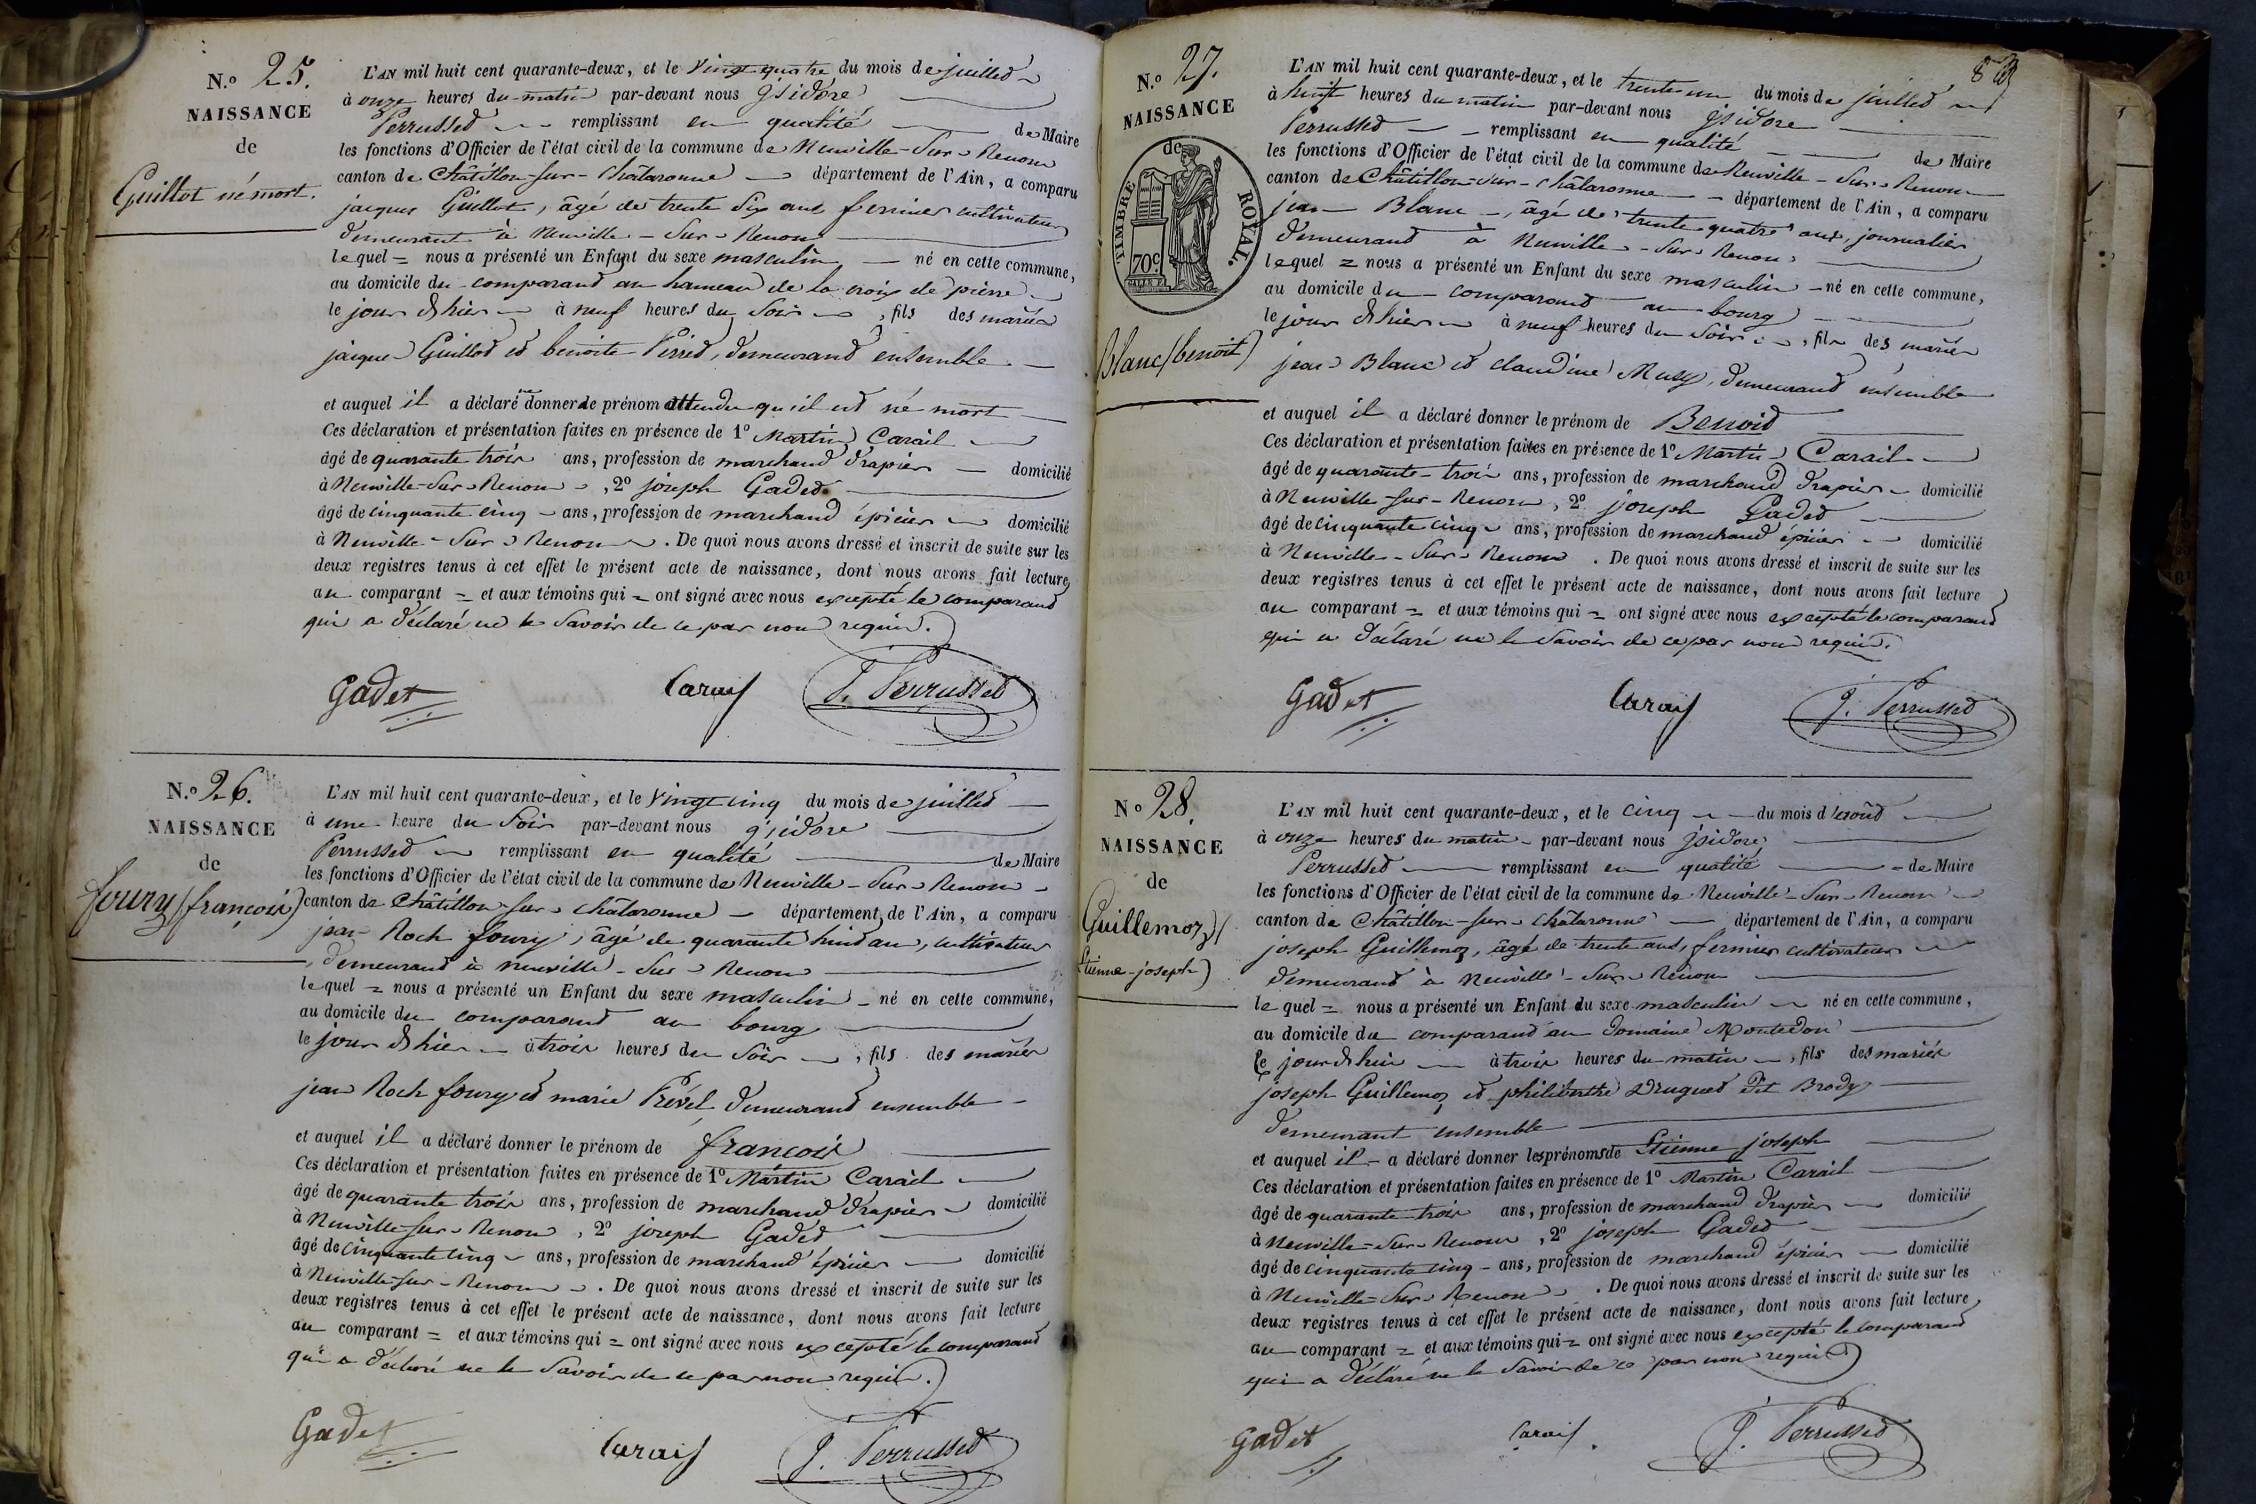 N.o 25.
NAISSANCE
de
Guillot né mort.
L'AN mil huit cent quarante-deux, et le Vingt quatre du mois de juillet
à onze heures du matin par-devant nous Isidore
Perrusset remplissant en qualité de Maire
les fonctions d'Officier de l'état civil de la commune de Neuville-Sur-Renom
canton de Châtillon-sur-Châlaronne département de l'Ain, a comparu
jacques Guillot, âgé de trente Six ans fermier cultivateur
demeurant à Neuville-Sur-Renom
lequel = nous a présenté un Enfant du sexe masculin né en cette commune,
au domicile du comparant au hameau de la croix de pierre
le jour d'hier à neuf heures du Soir, fils des mariés
jacques Guillot et benoite Perret, demeurant ensemble
et auquel il a déclaré ne donner de prénom attendu qu'il est né mort
Ces déclaration et présentation faites en présence de 1o Martin Carail
âgé de quarante trois ans, profession de marchand drapier domicilié
à Neuville-Sur-Renom, 2o joseph Gadet
âgé de cinquante cinq ans, profession de marchand épicier domicilié
à Neuville-Sur-Renom. De quoi nous avons dressé et inscrit de suite sur les
deux registres tenus à cet effet le présent acte de naissance, dont nous avons fait lecture
au comparant = et aux témoins qui = ont signé avec nous excepté le comparant
qui a déclaré ne le Savoir de ce par nous requis.
Gadet Carail J. Perrusset
N.o 26.
NAISSANCE
de
foury (françois)
L'AN mil huit cent quarante-deux, et le Vingt cinq du mois de juillet
à une heure du Soir par-devant nous Isidore
Perrusset remplissant en qualité de Maire
les fonctions d'Officier de l'état civil de la commune de Neuville-Sur-Renom
canton de Châtillon-sur-châlaronne département de l'Ain, a comparu
jean Roch foury, âgé de quarante huit ans, cultivateur
demeurant à neuville-Sur-Renom
lequel = nous a présenté un Enfant du sexe masculin né en cette commune,
au domicile du comparant au bourg
le jour d'hier à trois heures du Soir, fils des mariés
jean Roch foury et marie Prével, demeurant ensemble
et auquel il a déclaré donner le prénom de françois
Ces déclaration et présentation faites en présence de 1o Martin Carail
âgé de quarante trois ans, profession de marchand drapier domicilié
à Neuville-sur-Renom, 2o joseph Gadet
âgé de cinquante cinq ans, profession de marchand épicier domicilié
à Neuville-sur-Renom. De quoi nous avons dressé et inscrit de suite sur les
deux registres tenus à cet effet le présent acte de naissance, dont nous avons fait lecture
au comparant = et aux témoins qui = ont signé avec nous excepté le comparant
qui a déclaré ne le Savoir de ce par nous requis.
Gadet Carail J. Perrusset
N.o 27.
NAISSANCE
de
TIMBRE ROYAL.
70c
Blanc (benoit)
L'AN mil huit cent quarante-deux, et le trente-un du mois de juillet
à huit heures du matin par-devant nous Isidore
Perrusset remplissant en qualité de Maire
les fonctions d'Officier de l'état civil de la commune de Neuville-Sur-Renom
canton de Châtillon-sur-Châlaronne département de l'Ain, a comparu
jean Blanc, âgé de trente quatre ans, journalier
demeurant à Neuville-Sur-Renom
lequel = nous a présenté un Enfant du sexe masculin né en cette commune,
au domicile du comparant au bourg
le jour d'hier à neuf heures du Soir, fils des mariés
jean Blanc et claudine Musy, demeurant ensemble
et auquel il a déclaré donner le prénom de Benoit
Ces déclaration et présentation faites en présence de 1o Martin Carail
âgé de quarante-trois ans, profession de marchand drapier domicilié
à Neuville-sur-Renom, 2o joseph Gadet
âgé de cinquante cinq ans, profession de marchand épicier domicilié
à Neuville-Sur-Renom. De quoi nous avons dressé et inscrit de suite sur les
deux registres tenus à cet effet le présent acte de naissance, dont nous avons fait lecture
au comparant = et aux témoins qui = ont signé avec nous excepté le comparant
qui a déclaré ne le Savoir de ce par nous requis.
Gadet Carail J. Perrusset
No 28.
NAISSANCE
de
Guillemoz (
Etienne-joseph)
L'AN mil huit cent quarante-deux, et le cinq du mois d'août
à onze heures du matin par-devant nous Isidore
Perrusset remplissant en qualité de Maire
les fonctions d'Officier de l'état civil de la commune de Neuville-Sur-Renom
canton de Châtillon-sur-châlaronne département de l'Ain, a comparu
joseph Guillemoz, âgé de trente ans, fermier cultivateur
demeurant à Neuville-Sur-Renom
lequel = nous a présenté un Enfant du sexe masculin né en cette commune,
au domicile du comparant au domaine Montedon
le jour d'hui à trois heures du matin, fils des mariés
joseph Guillemoz et philiberthe Druguet dit Brody
demeurant ensemble
et auquel il a déclaré donner les prénoms de Etienne joseph
Ces déclaration et présentation faites en présence de 1o Martin Carail
âgé de quarante trois ans, profession de marchand drapier domicilié
à Neuville-Sur-Renom, 2o joseph Gadet
âgé de cinquante cinq ans, profession de marchand épicier domicilié
à Neuville-Sur-Renom. De quoi nous avons dressé et inscrit de suite sur les
deux registres tenus à cet effet le présent acte de naissance, dont nous avons fait lecture
au comparant = et aux témoins qui = ont signé avec nous excepté le comparant
qui a déclaré ne le Savoir de ce par nous requis
Gadet Carail J. Perrusset